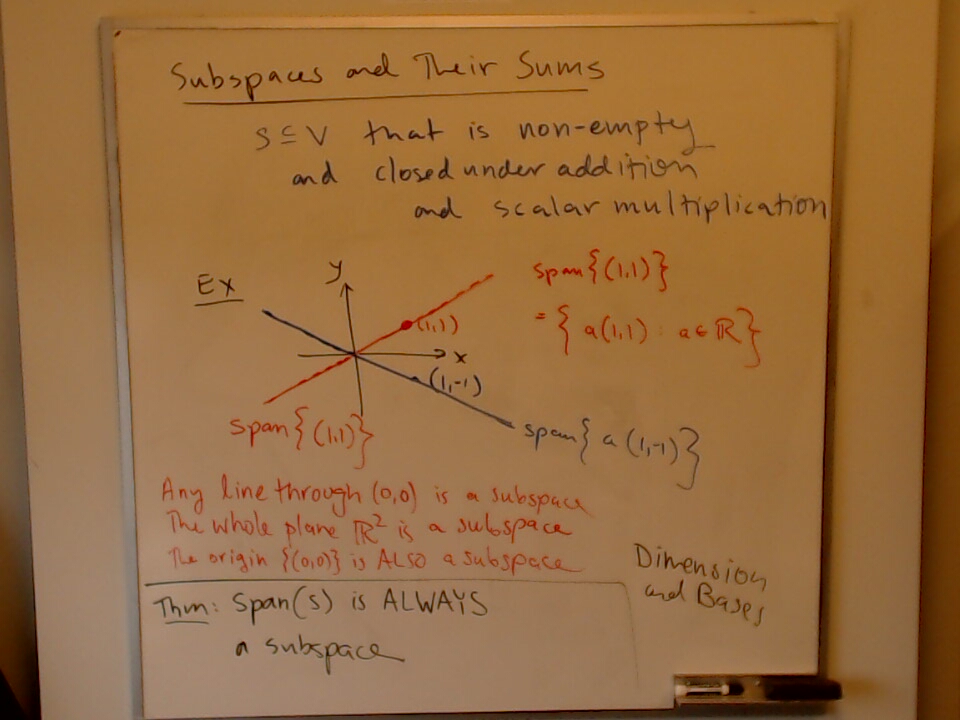 Subspaces and Their Sums
S ⊆ V that is non-empty
and closed under addition
and scalar multiplication
Ex
y
x
(1,1)
(1,-1)
span{(1,1)}
= { a(1,1) : a ∈ ℝ }
span{(1,1)}
span{ a (1,-1)}
Any line through (0,0) is a subspace
The whole plane ℝ² is a subspace
The origin {(0,0)} is ALSO a subspace
Thm: Span(S) is ALWAYS
a subspace
Dimension
and Bases